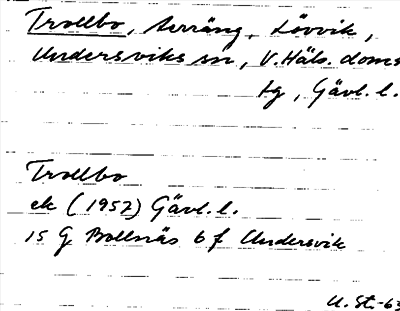 Trollbo, terräng, Lövvik,
Undersviks sn, V. Häls. doms
tg, Gävl. l.
Trollbo
ek (1952) Gävl. l.
15 G Bollnäs 6 f Undersvik
U. St. -63